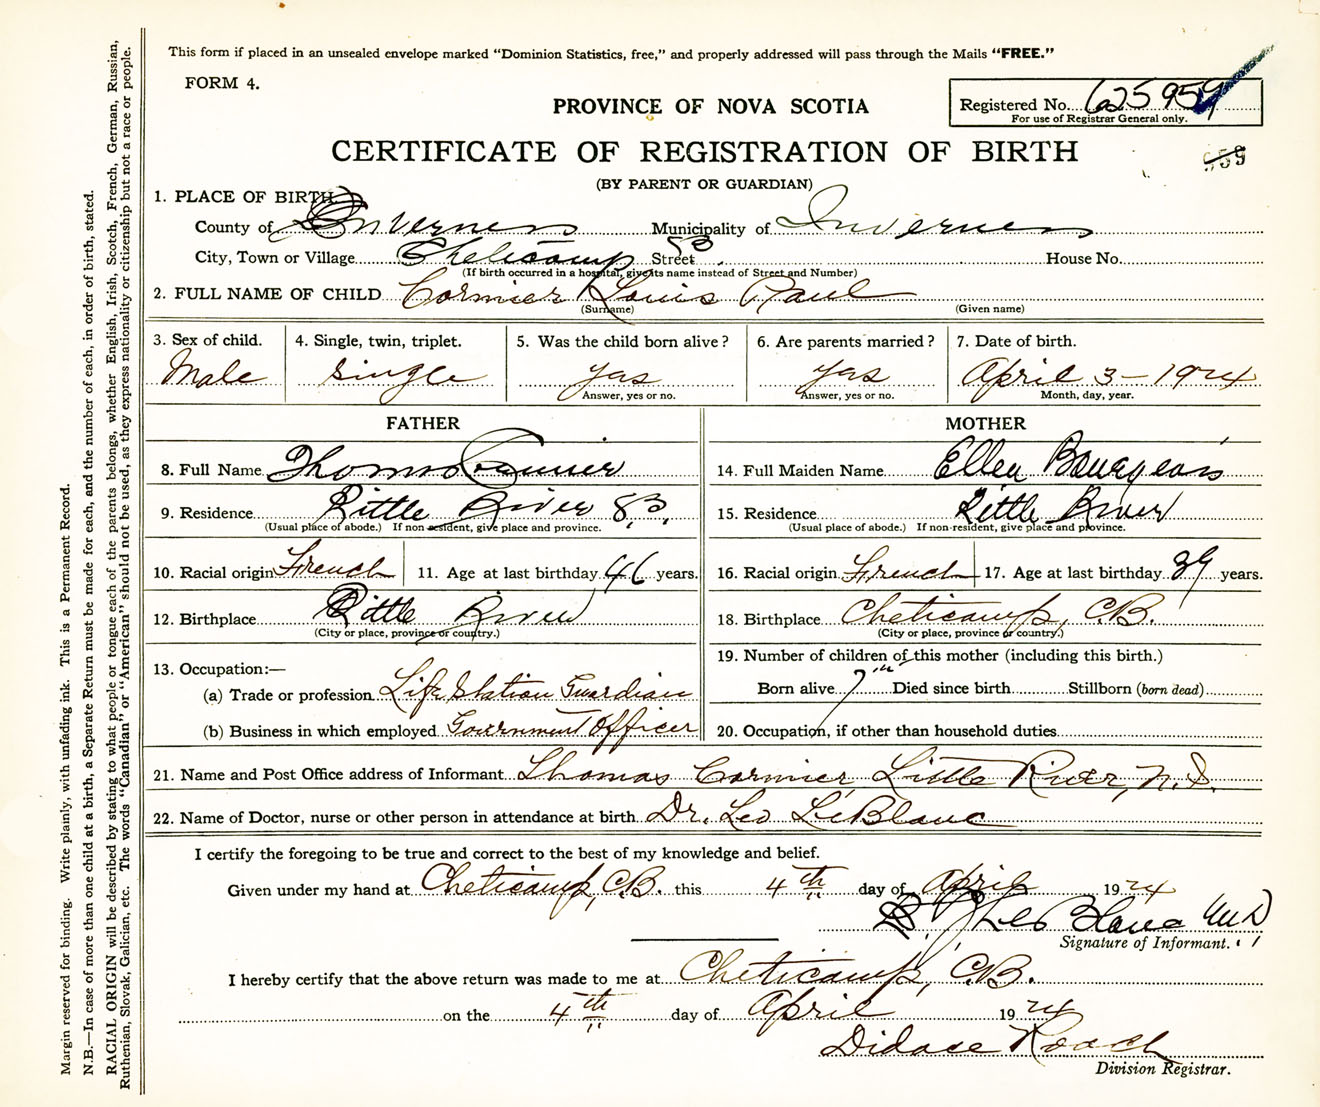 This form if placed in an unsealed envelope marked “Dominion Statistics, free,” and properly addressed will pass through the Mails “FREE.”
FORM 4.
Registered No. 625959
For use of Registrar General only.
PROVINCE OF NOVA SCOTIA
CERTIFICATE OF REGISTRATION OF BIRTH
959
(BY PARENT OR GUARDIAN)
1. PLACE OF BIRTH
County of Inverness Municipality of Inverness
City, Town or Village Cheticamp Street House No.
(If birth occurred in a hospital, give its name instead of Street and Number)
2. FULL NAME OF CHILD Cormier Louis Paul
(Surname) (Given name)
3. Sex of child. 4. Single, twin, triplet. 5. Was the child born alive? 6. Are parents married? 7. Date of birth.
Male Single yas yas April 3-1924
Answer, yes or no. Answer, yes or no. Month, day, year.
FATHER MOTHER
8. Full Name Thomas Cormier 14. Full Maiden Name Ellen Bourgeois
9. Residence Little River 15. Residence Little River
(Usual place of abode.) If non-resident, give place and province. (Usual place of abode.) If non-resident, give place and province.
10. Racial origin French 11. Age at last birthday 46 years. 16. Racial origin French 17. Age at last birthday 39 years.
12. Birthplace Little River 18. Birthplace Cheticamp, C.B.
(City or place, province or country.) (City or place, province or country.)
13. Occupation:— 19. Number of children of this mother (including this birth.)
(a) Trade or profession Life Station Guardian Born alive 7 Died since birth Stillborn (born dead)
(b) Business in which employed Government Officer 20. Occupation, if other than household duties
21. Name and Post Office address of Informant Thomas Cormier, Little River, N.S.
22. Name of Doctor, nurse or other person in attendance at birth Dr. Leo LeBlanc
I certify the foregoing to be true and correct to the best of my knowledge and belief.
Given under my hand at Cheticamp, C.B. this 4th day of April 1924
LeBlanc M.D.
Signature of Informant.
I hereby certify that the above return was made to me at Cheticamp, C.B.
on the 4th day of April 1924
Didace Roach
Division Registrar.
Margin reserved for binding. Write plainly, with unfading ink. This is a Permanent Record.
N.B.—In case of more than one child at a birth, a Separate Return must be made for each, and the number of each, in order of birth, stated.
RACIAL ORIGIN will be described by stating to what people or tongue each of the parents belongs, whether English, Irish, Scotch, French, German, Russian,
Ruthenian, Slovak, Galician, etc. The words “Canadian” or “American” should not be used, as they express nationality or citizenship but not a race or people.